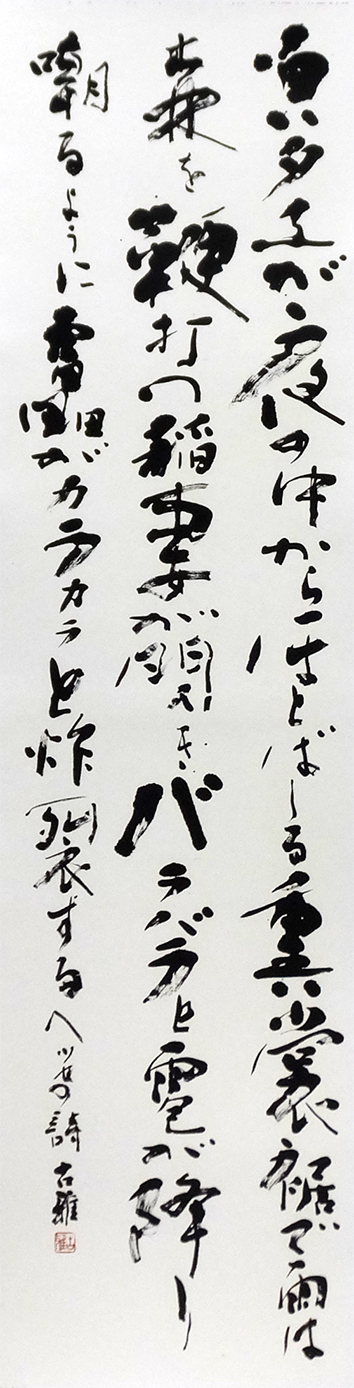 い夕立が夜の中からほとばしる重い裳裾で雨は
森を鞭打つ稲妻が閃きバラバラと雹が降り
嘲るように靁がカラカラと炸裂するヘッセの詩